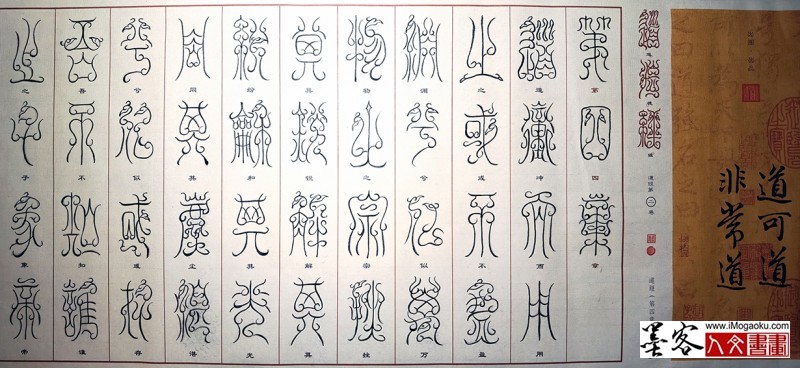 道可道
非常道
第四章
道冲而用
之或不盈
渊兮似万
物之宗挫
其锐解其
纷和其光
同其尘湛
兮似或存
吾不知谁
之子象帝
www.iMogaoku.com
墨客
人文書畫